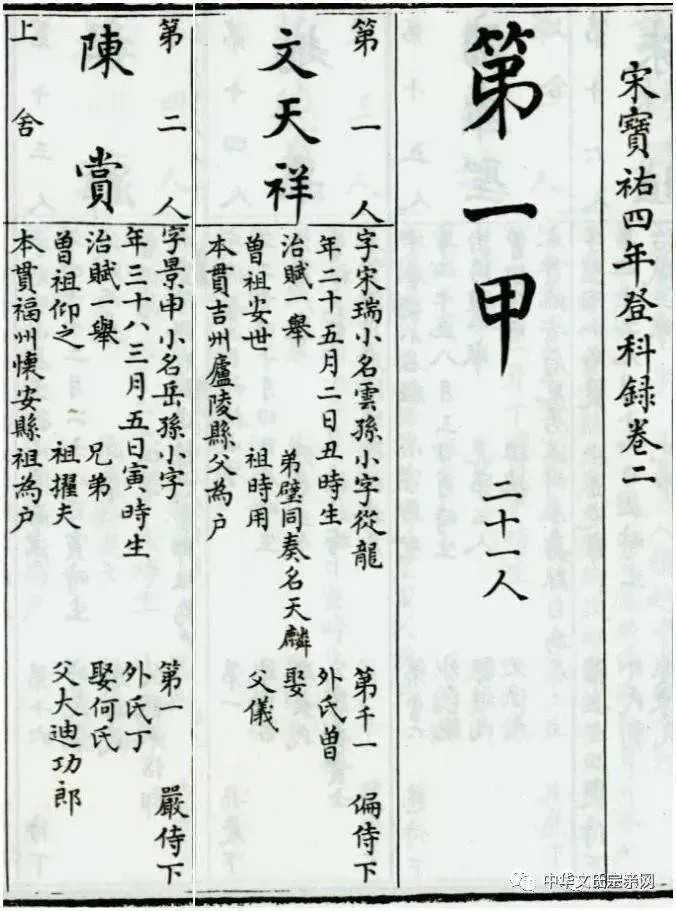 宋寶祐四年登科録卷二
第一甲 二十一人
第一人
文天祥
字宋瑞小名雲孫小字從龍 第千一 偏侍下
年二十五月二日丑時生 外氏曾
治賦一舉 弟璧同奏名天麟 娶
曾祖安世 祖時用 父儀
本貫吉州廬陵縣父為户
第二人
陳賞
上舍
字景申小名岳孫小字 第一 嚴侍下
年三十八三月五日寅時生 外氏丁
治賦一舉 兄弟 娶何氏
曾祖仰之 祖擢夫 父大迪功郎
本貫福州懷安縣祖為户
中华文氏定亲网